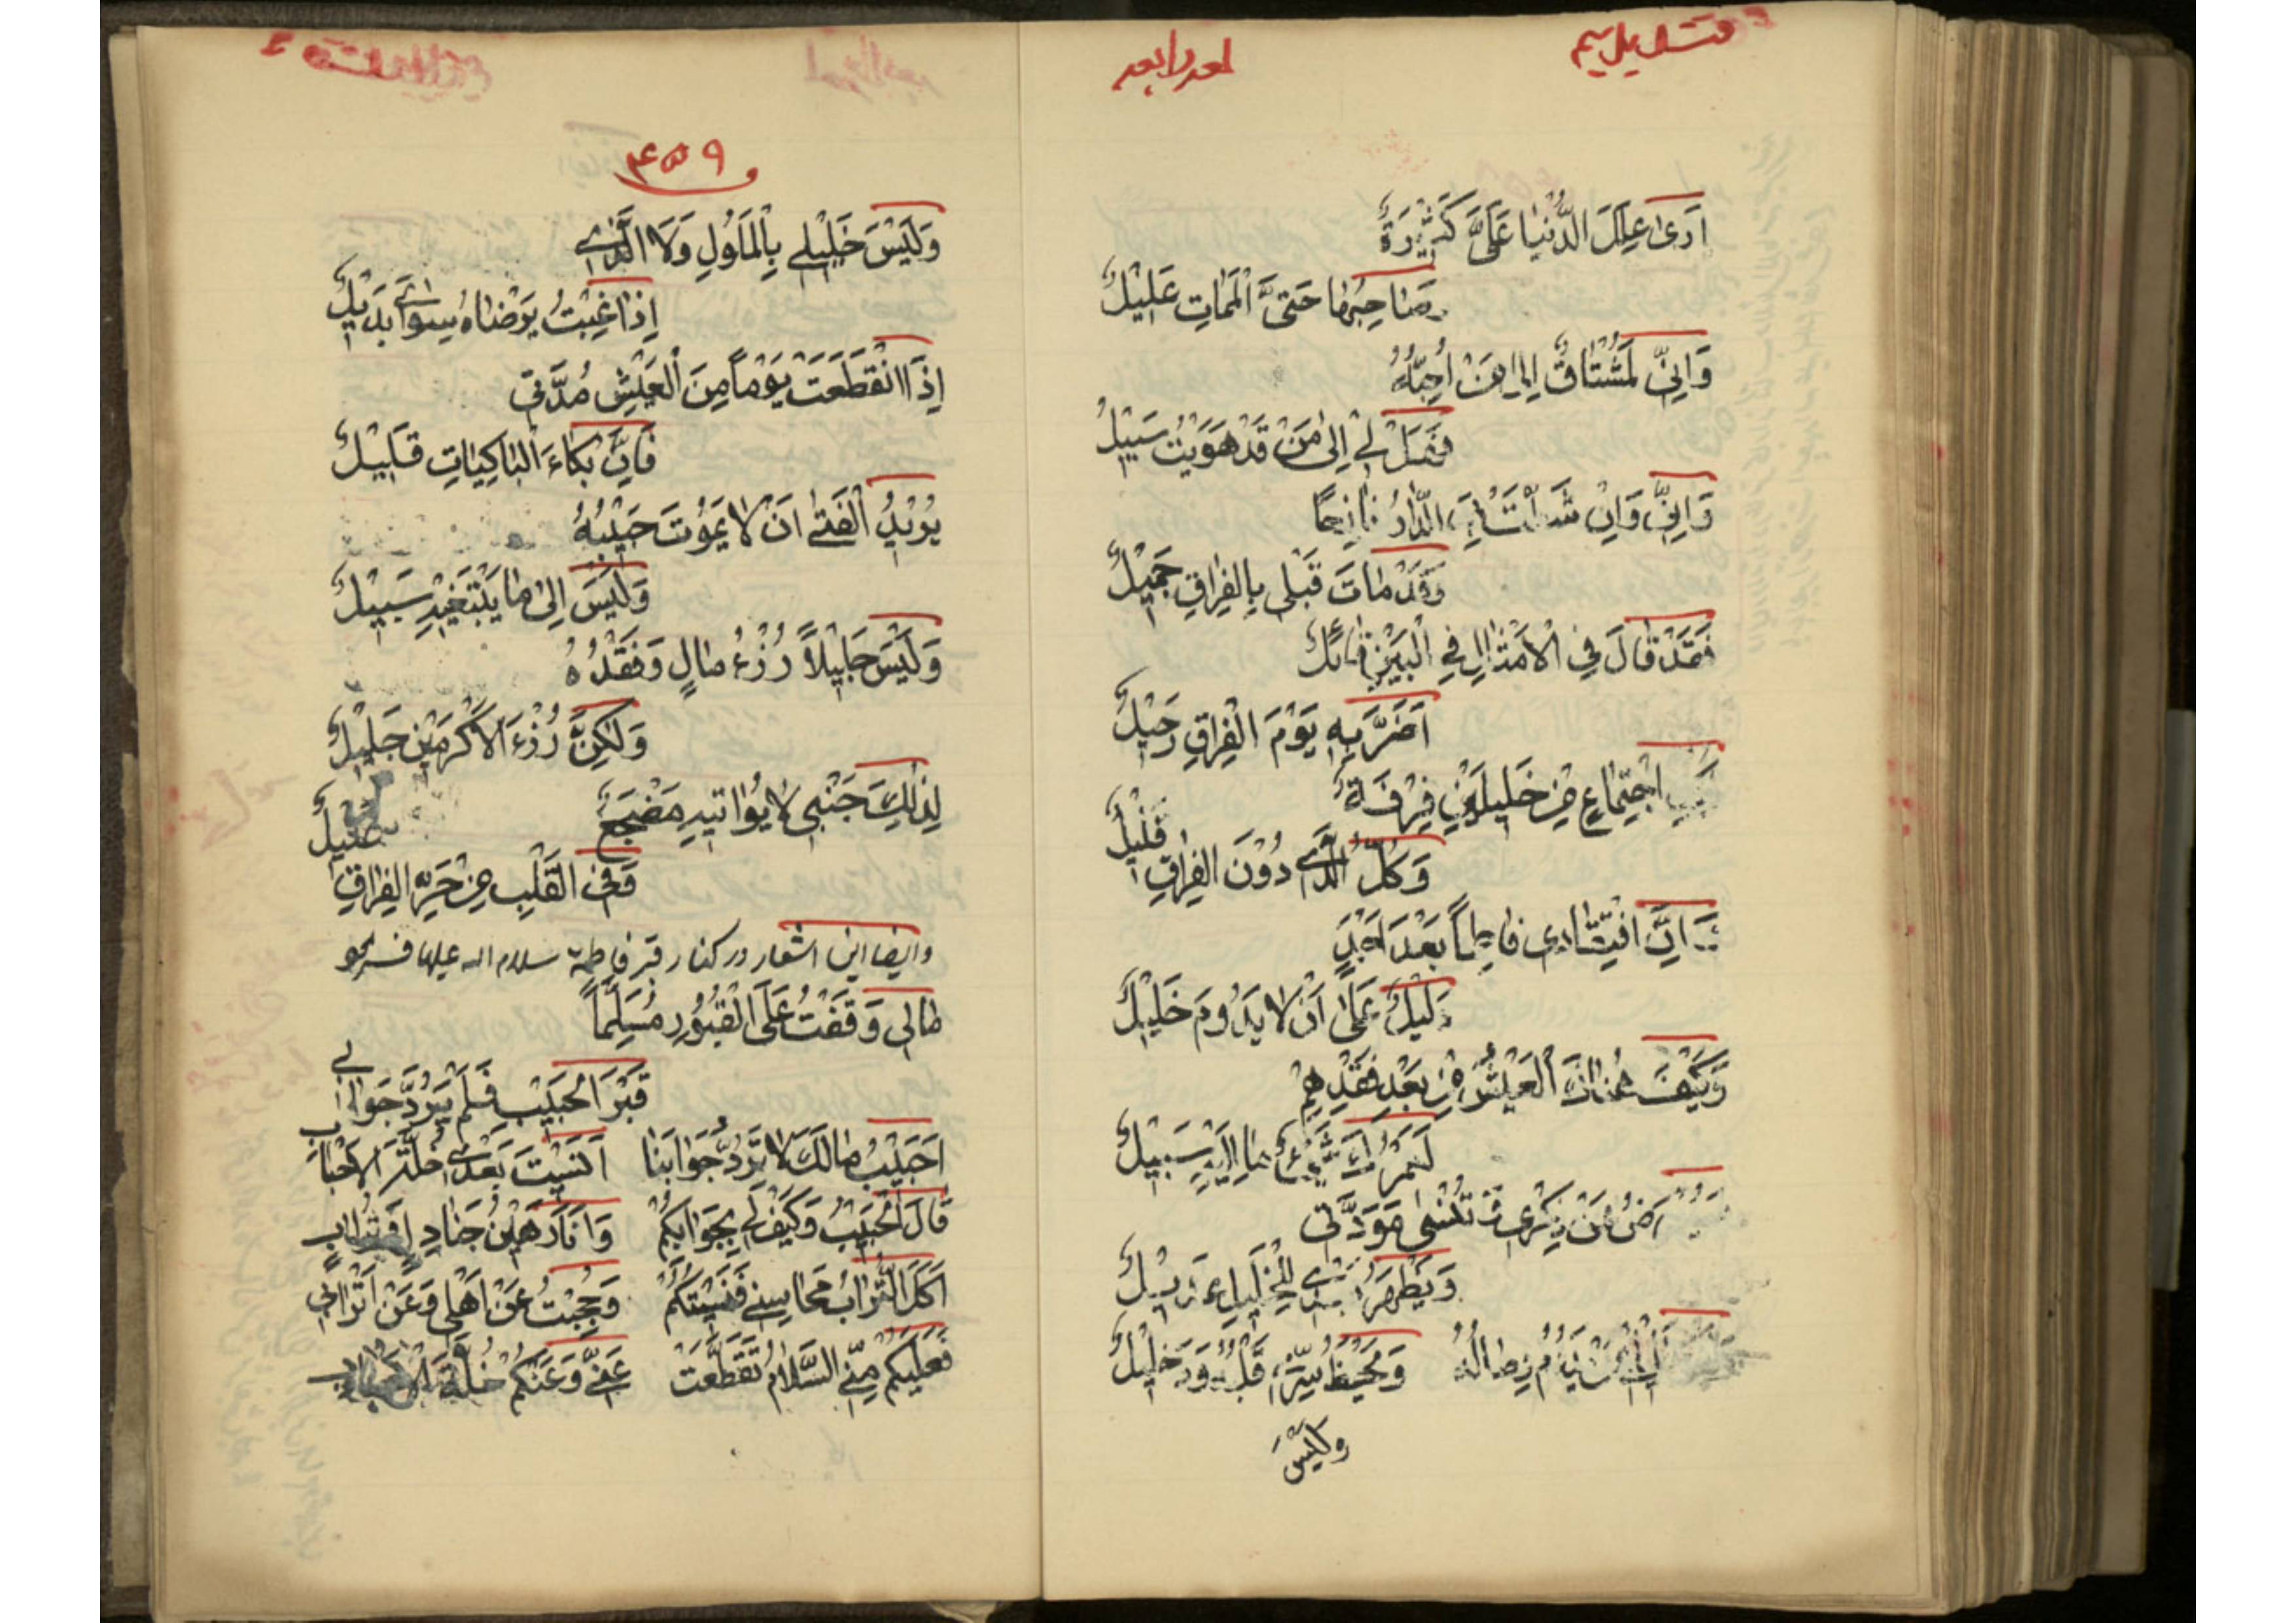 أَرَىٰ عِلَلَ الدُّنْيَا عَلَيَّ كَثِيْرَةٌ
وَصَاحِبُهَا حَتَّى الْمَمَاتِ عَلِيْلٌ
وَاِنِّي لَمُشْتَاقٌ اِلىٰ مَنْ أُحِبُّهُ
فَهَلْ لِي اِلىٰ مَنْ قَدْ هَوَيْتُ سَبِيْلُ
وَاِنِّي وَاِنْ شَطَّتْ بِيَ الدَّارُ نَازِحًا
وَقَدْ مَاتَ قَبْلِي بِالفِرَاقِ جَمِيْلٌ
فَقَدْ قَالَ فِي الْاَمْثَالِ فِي الْبَيْنِ قَائِلٌ
اَضَرَّ بِهِ يَوْمَ الْفِرَاقِ رَحِيْلٌ
اجْتِمَاعٍ مِنْ خَلِيلَيْنِ فِرْقَةٌ
وَكُلُّ الَّذِي دُوْنَ الفِرَاقِ قَلِيْلٌ
وَاِنَّ افْتِقَادِي فَاطِمًا بَعْدَ اَحْمَدٍ
دَلِيْلٌ عَلىٰ اَنْ لَا يَدُوْمَ خَلِيْلٌ
وَكَيْفَ هُنَاكَ الْعَيْشُ مِنْ بَعْدِ فَقْدِهِمْ
لَعَمْرُكَ شَيْءٌ مَا اِلَيْهِ سَبِيْلٌ
عَنْ ذِكْرِي وَتُنْسىٰ مَوَدَّتِي
وَيَظْهَرُ بَعْدِي لِلْخَلِيْلِ عَدِيْلٌ
وَيَحْفَظُ سِرِّي قَلْبُهُ وَدَخِيْلٌ
وَلَيْسَ
۴۵۹
وَلَيْسَ خَلِيْلِي بِالْمَلُولِ وَلَا الَّذِي
اِذَا غِبْتُ يَرْضَاهُ سِوَايَ بَدِيْلٌ
اِذَا انْقَطَعَتْ يَوْمًا مِنَ الْعَيْشِ مُدَّتِي
فَاِنَّ بُكَاءَ الْبَاكِيَاتِ قَلِيْلٌ
يُرِيْدُ الْفَتىٰ اَنْ لَا يَمُوْتَ حَبِيْبُهُ
وَلَيْسَ اِلىٰ مَا يَبْتَغِيْهِ سَبِيْلٌ
وَلَيْسَ جَلِيْلًا رُزْءُ مَالٍ وَفَقْدُهُ
وَلٰكِنَّ رُزْءَ الْاَكْرَمِيْنَ جَلِيْلٌ
لِذٰلِكَ جَنْبِي لَا يُؤَاتِيْهِ مَضْجَعٌ
وَفِي الْقَلْبِ مِنْ حَرِّ الفِرَاقِ غَلِيْلٌ
وایضا این اشعار در کنار قبر فاطمه سلام الله علیها فرمود
مَالِي وَقَفْتُ عَلَى الْقُبُوْرِ مُسَلِّمًا
قَبْرَ الْحَبِيْبِ فَلَمْ يَرُدَّ جَوَابِي
اَحَبِيْبُ مَا لَكَ لَا تَرُدُّ جَوَابَنَا اَنَسِيْتَ بَعْدِي خُلَّةَ الْاَحْبَابِ
قَالَ الْحَبِيْبُ وَكَيْفَ لِي بِجَوَابِكُمْ وَاَنَا رَهِيْنُ جَنَادِلٍ وَتُرَابٍ
اَكَلَ التُّرَابُ مَحَاسِنِي فَنَسِيْتُكُمْ وَحُجِبْتُ عَنْ اَهْلِي وَعَنْ اَتْرَابِي
فَعَلَيْكُمْ مِنِّي السَّلَامُ تَقَطَّعَتْ عَنِّي وَعَنْكُمْ خُلَّةُ الْاَحْبَابِ